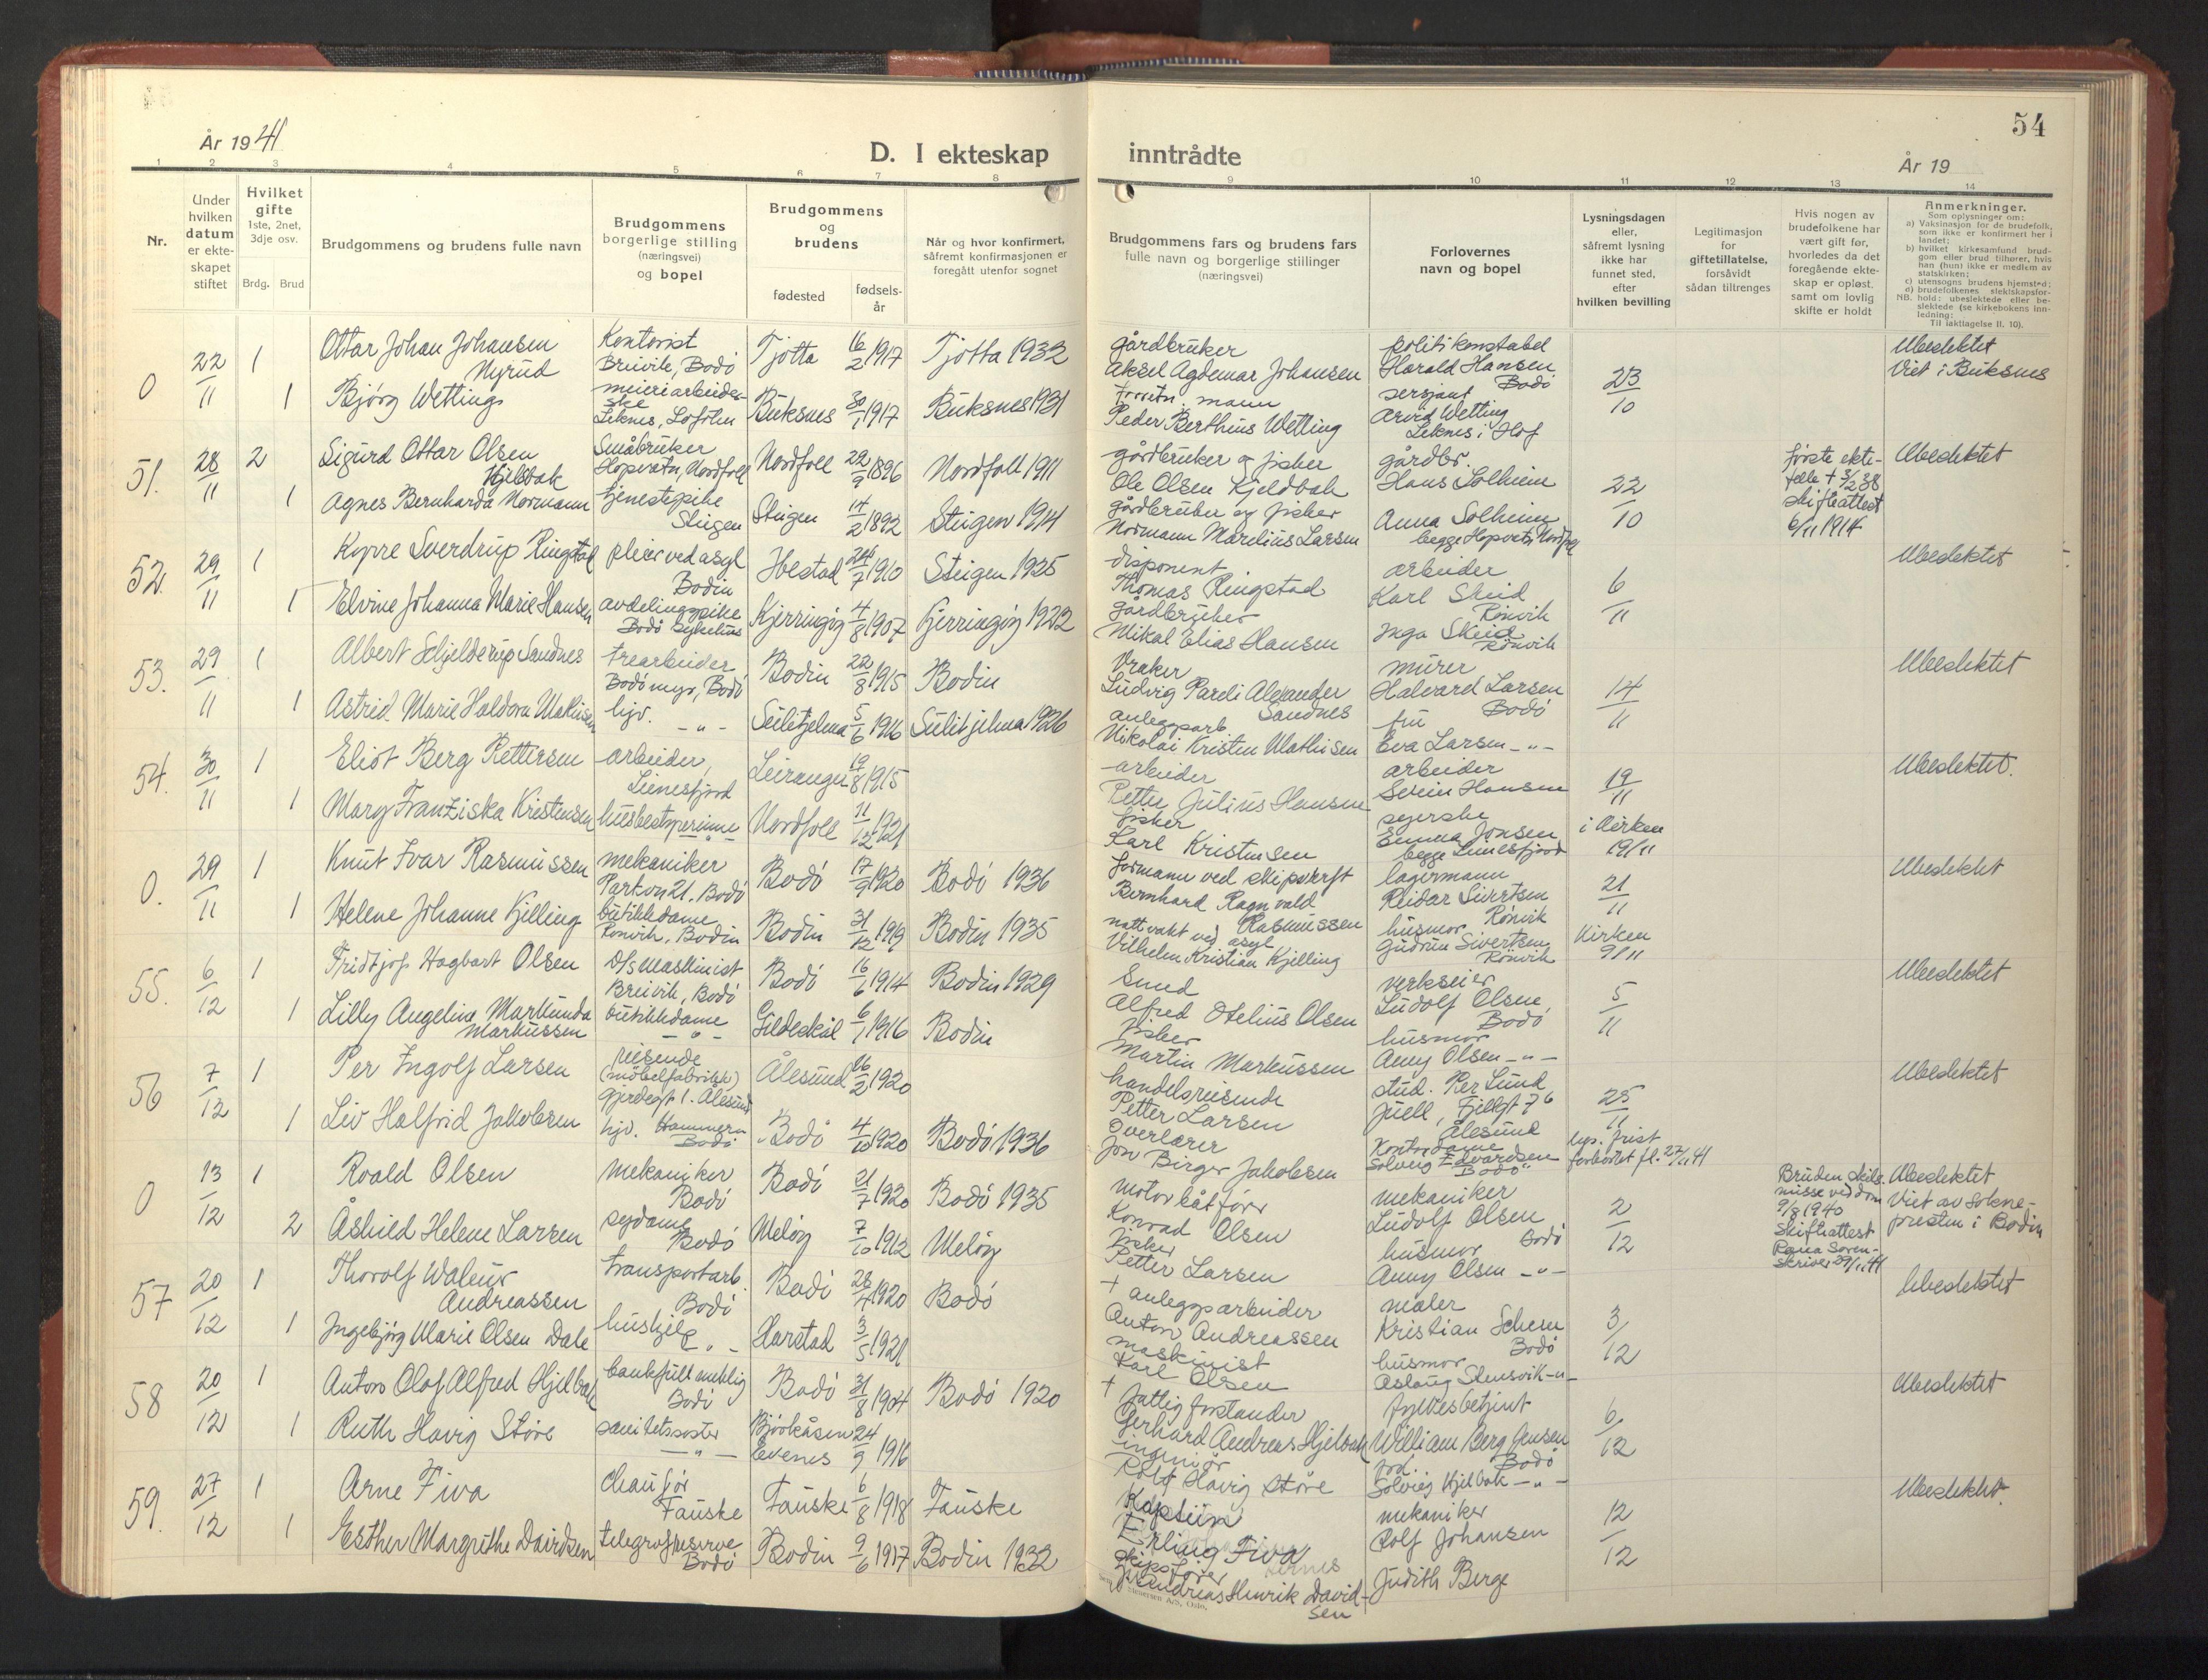 54
År 1941
D. I ekteskap inntrådte
År 19
1 2 3 4 5 6 7 8 9 10 11 12 13 14
Nr.
Under
hvilken
datum
er ekte-
skapet
stiftet
Hvilket
gifte
1ste, 2net,
3dje osv.
Brdg. Brud
Brudgommens og brudens fulle navn
Brudgommens
borgerlige stilling
(næringsvei)
og bopel
Brudgommens
og
brudens
fødested
fødsels-
år
Når og hvor konfirmert,
såfremt konfirmasjonen er
foregått utenfor sognet
Brudgommens fars og brudens fars
fulle navn og borgerlige stillinger
(næringsvei)
Forlovernes
navn og bopel
Lysningsdagen
eller,
såfremt lysning
ikke har
funnet sted,
efter
hvilken bevilling
Legitimasjon
for
giftetillatelse,
forsåvidt
sådan tiltrenges
Hvis nogen av
brudefolkene har
vært gift før,
hvorledes da det
foregående ekte-
skap er opløst.
samt om lovlig
skifte er holdt
Anmerkninger.
Som oplysninger om:
a) Vaksinasjon for de brudefolk,
som ikke er konfirmert her i
landet;
b) hvilket kirkesamfund brud-
gom eller brud tilhører, hvis
han (hun) ikke er medlem av
statskirken;
c) utensogns brudens hjemsted;
d) brudefolkenes slektskapsfor-
NB. hold: ubeslektede eller be-
slektede (se kirkebokens inn-
ledning:
Til iakttagelse II. 10).
0 22/11 1 Ottar Johan Johansen Nyrud
Kontorist
Breivik, Bodö
Tjötta 16/2 1917 Tjötta 1932
gårdbruker
Aksel Agdemar Johansen
politikonstabel
Harald Hansen
Bodö
23/10
Ubeslektet
Viet i Buksnes
1 Bjørg Wettings
meieriarbeider-
ske
Leknes, Lofoten
Buksnes 30/1 1917 Buksnes 1931
forretn. mann
Peder Bertheus Wetting
sersjant
Arvid Wetting
Leknes i Hof
51. 28/11 2 Sigurd Ottar Olsen
Kjelbak
Småbruker
Hopvatn, Nordfoll
Nordfoll 22/9 1896 Nordfoll 1911
gårdbruker og fisker
Ole Olsen Kjeldbak
gårdbr.
Hans Solheim
22/10
første ekte-
felle † 3/2 38
skifteattest
6/11 1914
Ubeslektet
1 Agnes Bernharda Normann
tjenestepike
Steigen
Steigen 14/2 1892 Steigen 1914
gårdbruker og fisker
Normann Marelius Larsen
Anna Solheim
begge Hopvatn Nordfoll
52. 29/11 1 Kopre Sverdrup Ringstad
pleier ved asyl
Bodin
24/7 1910 Steigen 1925
disponent
Thomas Ringstad
arbeider
Karl Skeid
Rönvik
6/11
Ubeslektet
1 Elvine Johanna Marie Hansen
avdelingspike
Bodö sykehus
Kjerringöy 4/8 1907 Kjerringöy 1922
gårdbruker
Mikal Elias Hansen
Inga Skeid
Rönvik
53. 29/11 1 Albert Schjelderup Sandnes
trearbeider
Bodömyr, Bodö
Bodin 22/8 1915 Bodin
Vraker
Ludvig Pareli Alexander
Sandnes
murer
Halvard Larsen
Bodö
14/11
Ubeslektet
1 Astrid Marie Haldora Mathisen
hjv. - " -
Sulitjelma 5/6 1916 Sulitjelma 1926
anleggsarb.
Nikolai Kristen Mathisen
fru
Eva Larsen - " -
54. 30/11 1 Eliot Berg Pettersen
arbeider,
Leinesfjord
Leiranger 19/8 1915
arbeider
Petter Julius Hansen
arbeider
Severin Hansen
19/11
Ubeslektet.
1 Mary Franziska Kristensen
husbestyrerinne
Nordfoll 11/12 1921
fisker
Karl Kristensen
syerske
Emma Jonsen
begge Leinesfjord
i Kirken
19/11
0. 29/11 1 Knut Ivar Rasmussen
mekaniker
Parkvn 21. Bodö
Bodö 17/9 1920 Bodö 1936
formann ved skipsverft
Bernhard Ragnvald
Rasmussen
lagermann
Reidar Sivertsen
Rönvik
21/11
Ubeslektet
1 Helene Johanne Kjelling
butikkdame
Rönvik, Bodin
Bodin 31/12 1919 Bodin 1935
nattvakt ved asyl
Vilhelm Kristian Kjelling
husmor
Gudrun Sivertsen
Rönvik
Kirken
9/11
55. 6/12 1 Fridtjof Hagbart Olsen
D/s maskinist
Breivik, Bodö
Bodö 16/6 1914 Bodin 1929
Smed
Alfred Otelius Olsen
verkseier
Ludolf Olsen
Bodö
5/11
Ubeslektet
1 Lilly Angeline Markunda
Markussen
butikkdame
- " -
Gildeskål 6/1 1916 Bodin
fisker
Martin Markussen
husmor
Anny Olsen - " -
56 7/12 1 Per Ingolf Larsen
reisende
(møbelfabrikk)
Gjerdegt 1. Ålesund
Ålesund 26/2 1920
handelsreisende
Petter Larsen
stud. Per Lund
Juell, Fjellgt 76
Ålesund
25/11
Ubeslektet
1 Liv Halfrid Jakobsen
hjv. Hammern
Bodö
Bodö 4/10 1920 Bodö 1936
Overlærer
Jon Birger Jakobsen
Kontordame
Solveig Edvardsen
Bodö
lys. frist
forkortet fl. 27/11 41
0 13/12 1 Roald Olsen
mekaniker
Bodö
Bodö 21/7 1920 Bodö 1935
Motorbåtförer
Konrad Olsen
mekaniker
Ludolf Olsen
Bodö
2/12
Bruden skils-
misse ved dom
9/8 1940
Skifteattest
Rana Soren-
skriver 29/11 41
Ubeslektet
Viet av sokne-
presten i Bodin
2 Åshild Helene Larsen
sydame
Bodö
Melöy 7/10 1912 Melöy
fisker
Petter Larsen
husmor
Anny Olsen - " -
57 20/12 1 Thorolf
Andreassen
transportarb.
Bodö
Bodö 28/4 1920 Bodö
† anleggsarbeider
Anton Andreassen
maler
Kristian Scheen
Bodö
3/12
Ubeslektet
1 Ingebjørg Marie Olsen Dale
hushjelp
- " -
Harstad 3/5 1921
maskinist
Karl Olsen
husmor
Aslaug Stensvik - " -
58 20/12 1 Anton Olaf Alfred Hjelbak
bankfullmektig
Bodö
Bodö 31/8 1904 Bodö 1920
† fattigforstander
Gerhard Andreas Hjelbak
fylkesbetjent
William Berg Jensen
Bodö
6/12
Ubeslektet
1 Ruth Havig Støre
sanitetssöster
- " -
Bjørkåsen
Evenes
24/9 1916
ingeniør
Rolf Havig Støre
frd.
Solveig Hjelbak - " -
59. 27/12 1 Arne Fiva
chauför
Fauske
Fauske 6/8 1918 Fauske
Kaptein
Erling Fiva
mekaniker
Rolf Johansen
12/12
Ubeslektet.
1 Esther Margrethe Davidsen
telegrafreserve
Bodö
Bodin 9/6 1917 Bodin 1932
skipsförer
Andreas Henrik David-
sen
Judith Berge